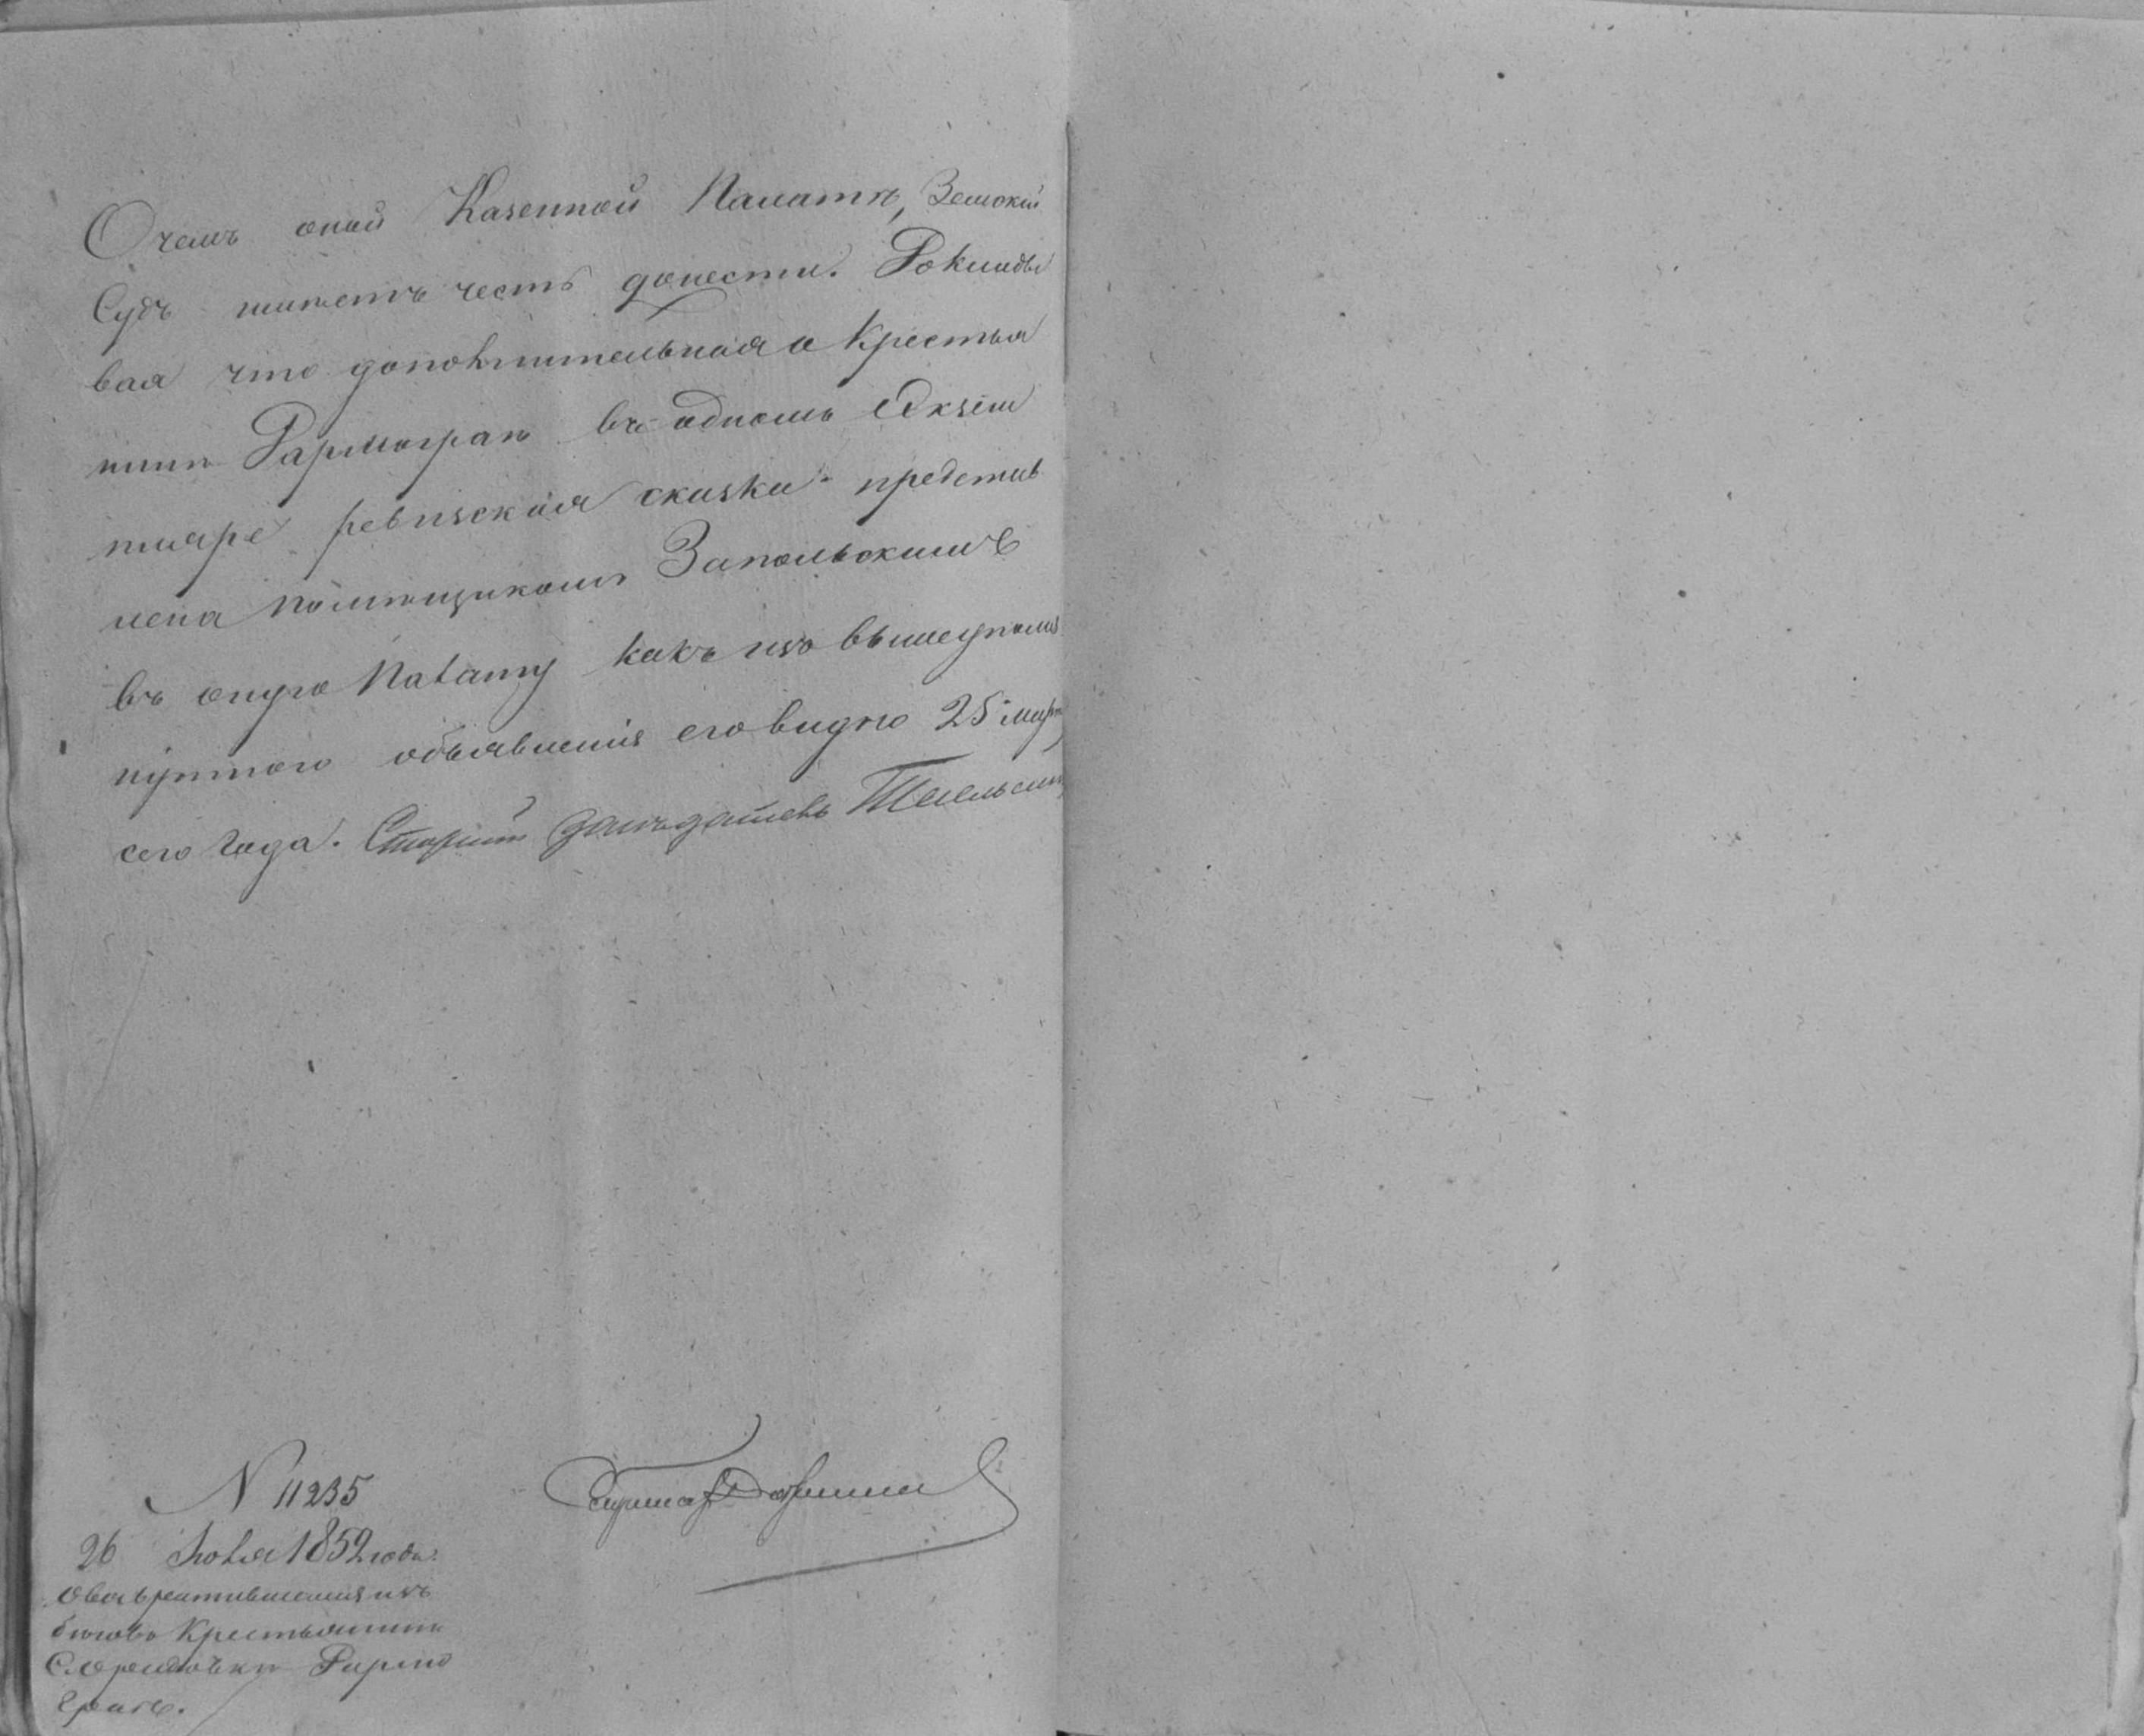 О чемъ оной Казенной Палатѣ, Земскій
Судъ имѣетъ честь донести. Докиады
вая что дополнительная о Крестья
нинѣ въ одномъ Экзем
пляре ревизская сказка представ
лена помѣщикомъ Запольскимъ
въ оную Палату какъ изъ вышеупомя
нутаго объявленія его видно 25 март
сего года. Старшій Засѣдатель
N 11235
26 Іюля 1852 года.
О возвратившемся изъ
бѣговъ Крестьянинѣ